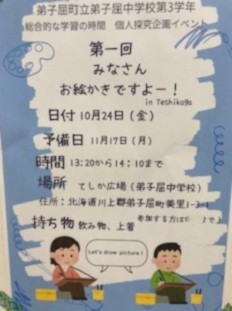 弟子屈町立弟子屈中学校第3学年
総合的な学習の時間 個人探究企画イベント
第一回
みなさん
お絵かきですよー!
in Teshikaga
日付 10月24日(金)
予備日 11月17日(月)
時間 13:20から14:10まで
場所 てしか広場(弟子屈中学校)
住所:北海道川上郡弟子屈町美里1-3-1
持ち物 飲み物、上着
参加する方は
Let's draw picture!